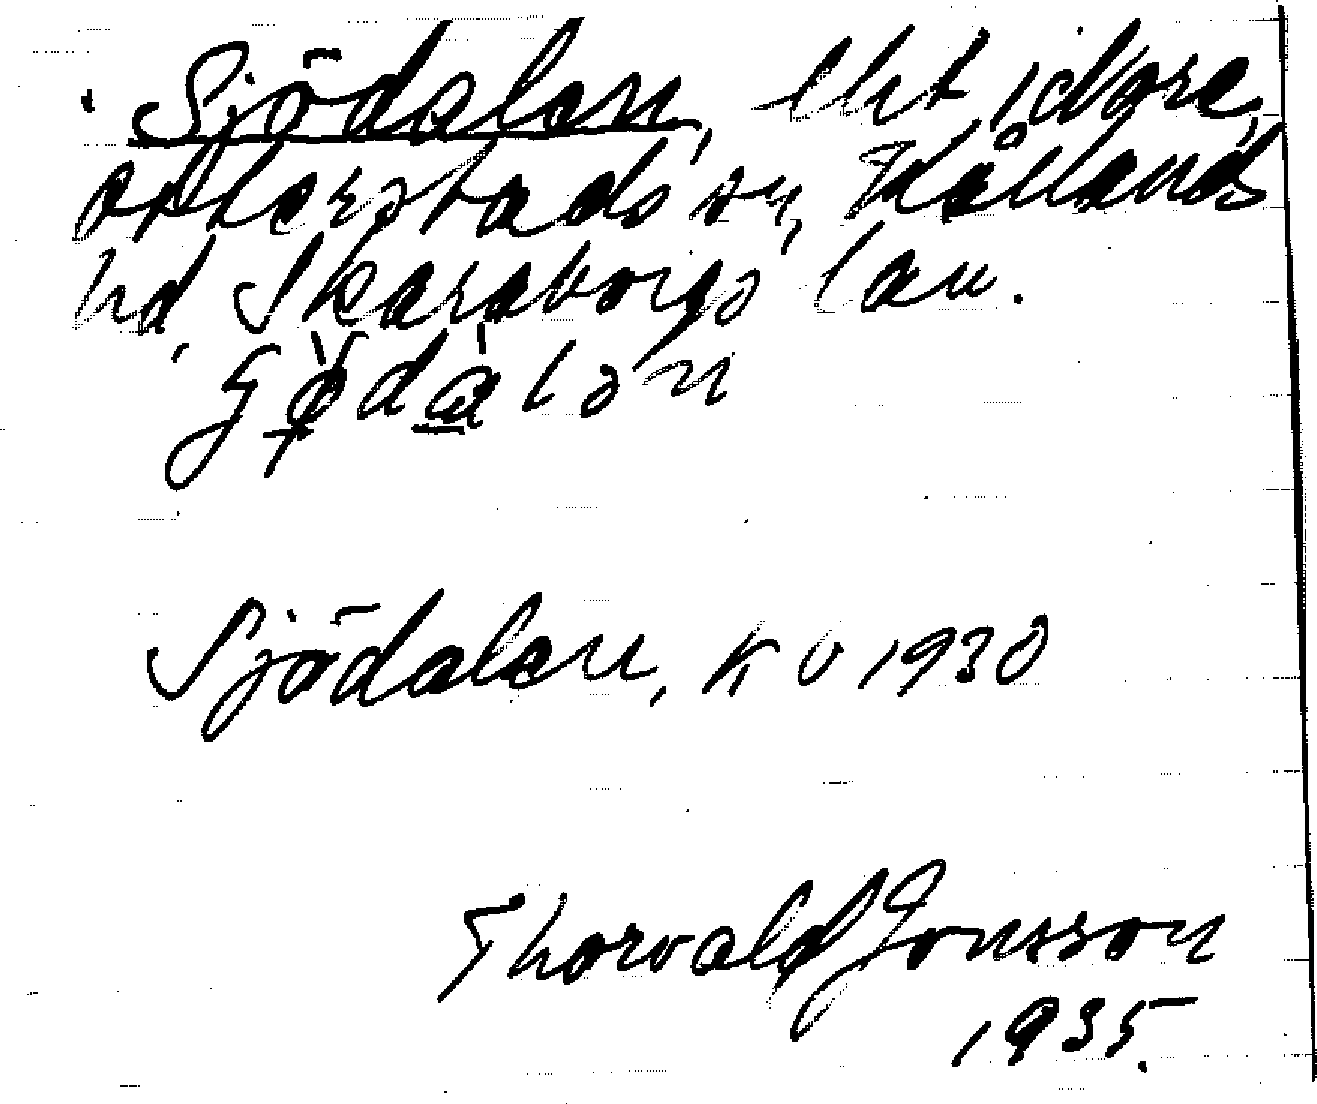 Sjödalen, lht i
Otterstads sn, Kållands
hd, Skaraborgs län.
Sjödalen, KU 1930
Thorvald Jonsson
1935.